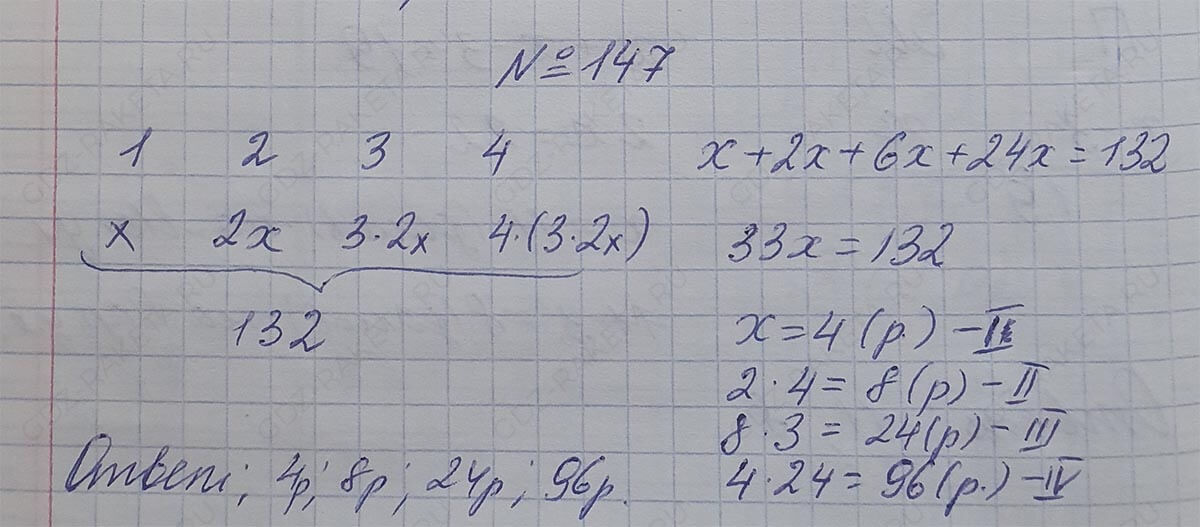 №147
1 2 3 4
x 2x 3·2x 4·(3·2x)
132
x+2x+6x+24x=132
33x=132
x=4(р.)-
2·4=8(р)-II
8·3=24(р)-III
4·24=96(р.)-IV
Ответ; 4р; 8р; 24р; 96р.